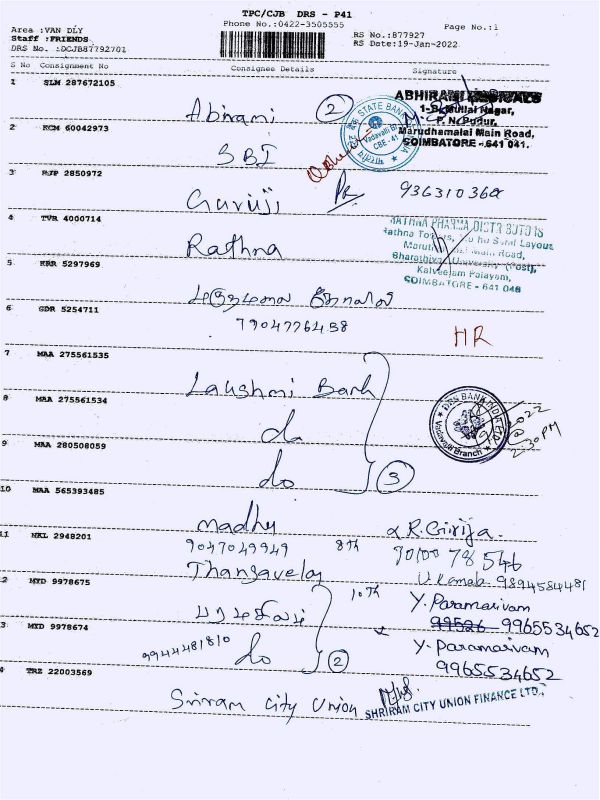 TPC/CJB DRS - P41
Area :VAN DLY
Phone No.:0422-3505555
Page No.:1
Staff :FRIENDS
RS No.:877927
DRS No. :DCJB87792701
RS Date:19-Jan-2022
S No Consignment No
Consignee Details
Signature
1 SLM 287672105
Abirami 2
ABHIRAMI
1-B, Mullai Nagar,
P. N. Pudur,
Marudhamalai Main Road,
COIMBATORE - 641 041.
STATE BANK
Vadavalli
CBE - 41
2 KCM 60042973
SBI
3 RJP 2850972
Guruji
4 TVR 4000714
Rathna
RATHNA PHARMA DISTRIBUTORS
Main Road,
Bharathiyar University (Post),
Kalveeram Palayam,
COIMBATORE - 641 046
5 KRR 5297969
6 GDR 5254711
7904776458
HR
7 MAA 275561535
Lakshmi Bank
8 MAA 275561534
do
DBS BANK INDIA LTD.
Vadavalli Branch
2022
@
2:30PM
9 MAA 280508059
do 3
10 MAA 565393485
Madhu
R. Girija.
11 NKL 2948201
9047049949
8th
Thangavelu
9894584481
2 MYD 9978675
10th
Y. Paramasivam
9965534652
3 MYD 9978674
9944481810
do 2
Y. Paramasivam
9965534652
4 TRZ 22003569
Sriram City Union
SHRIRAM CITY UNION FINANCE LTD.